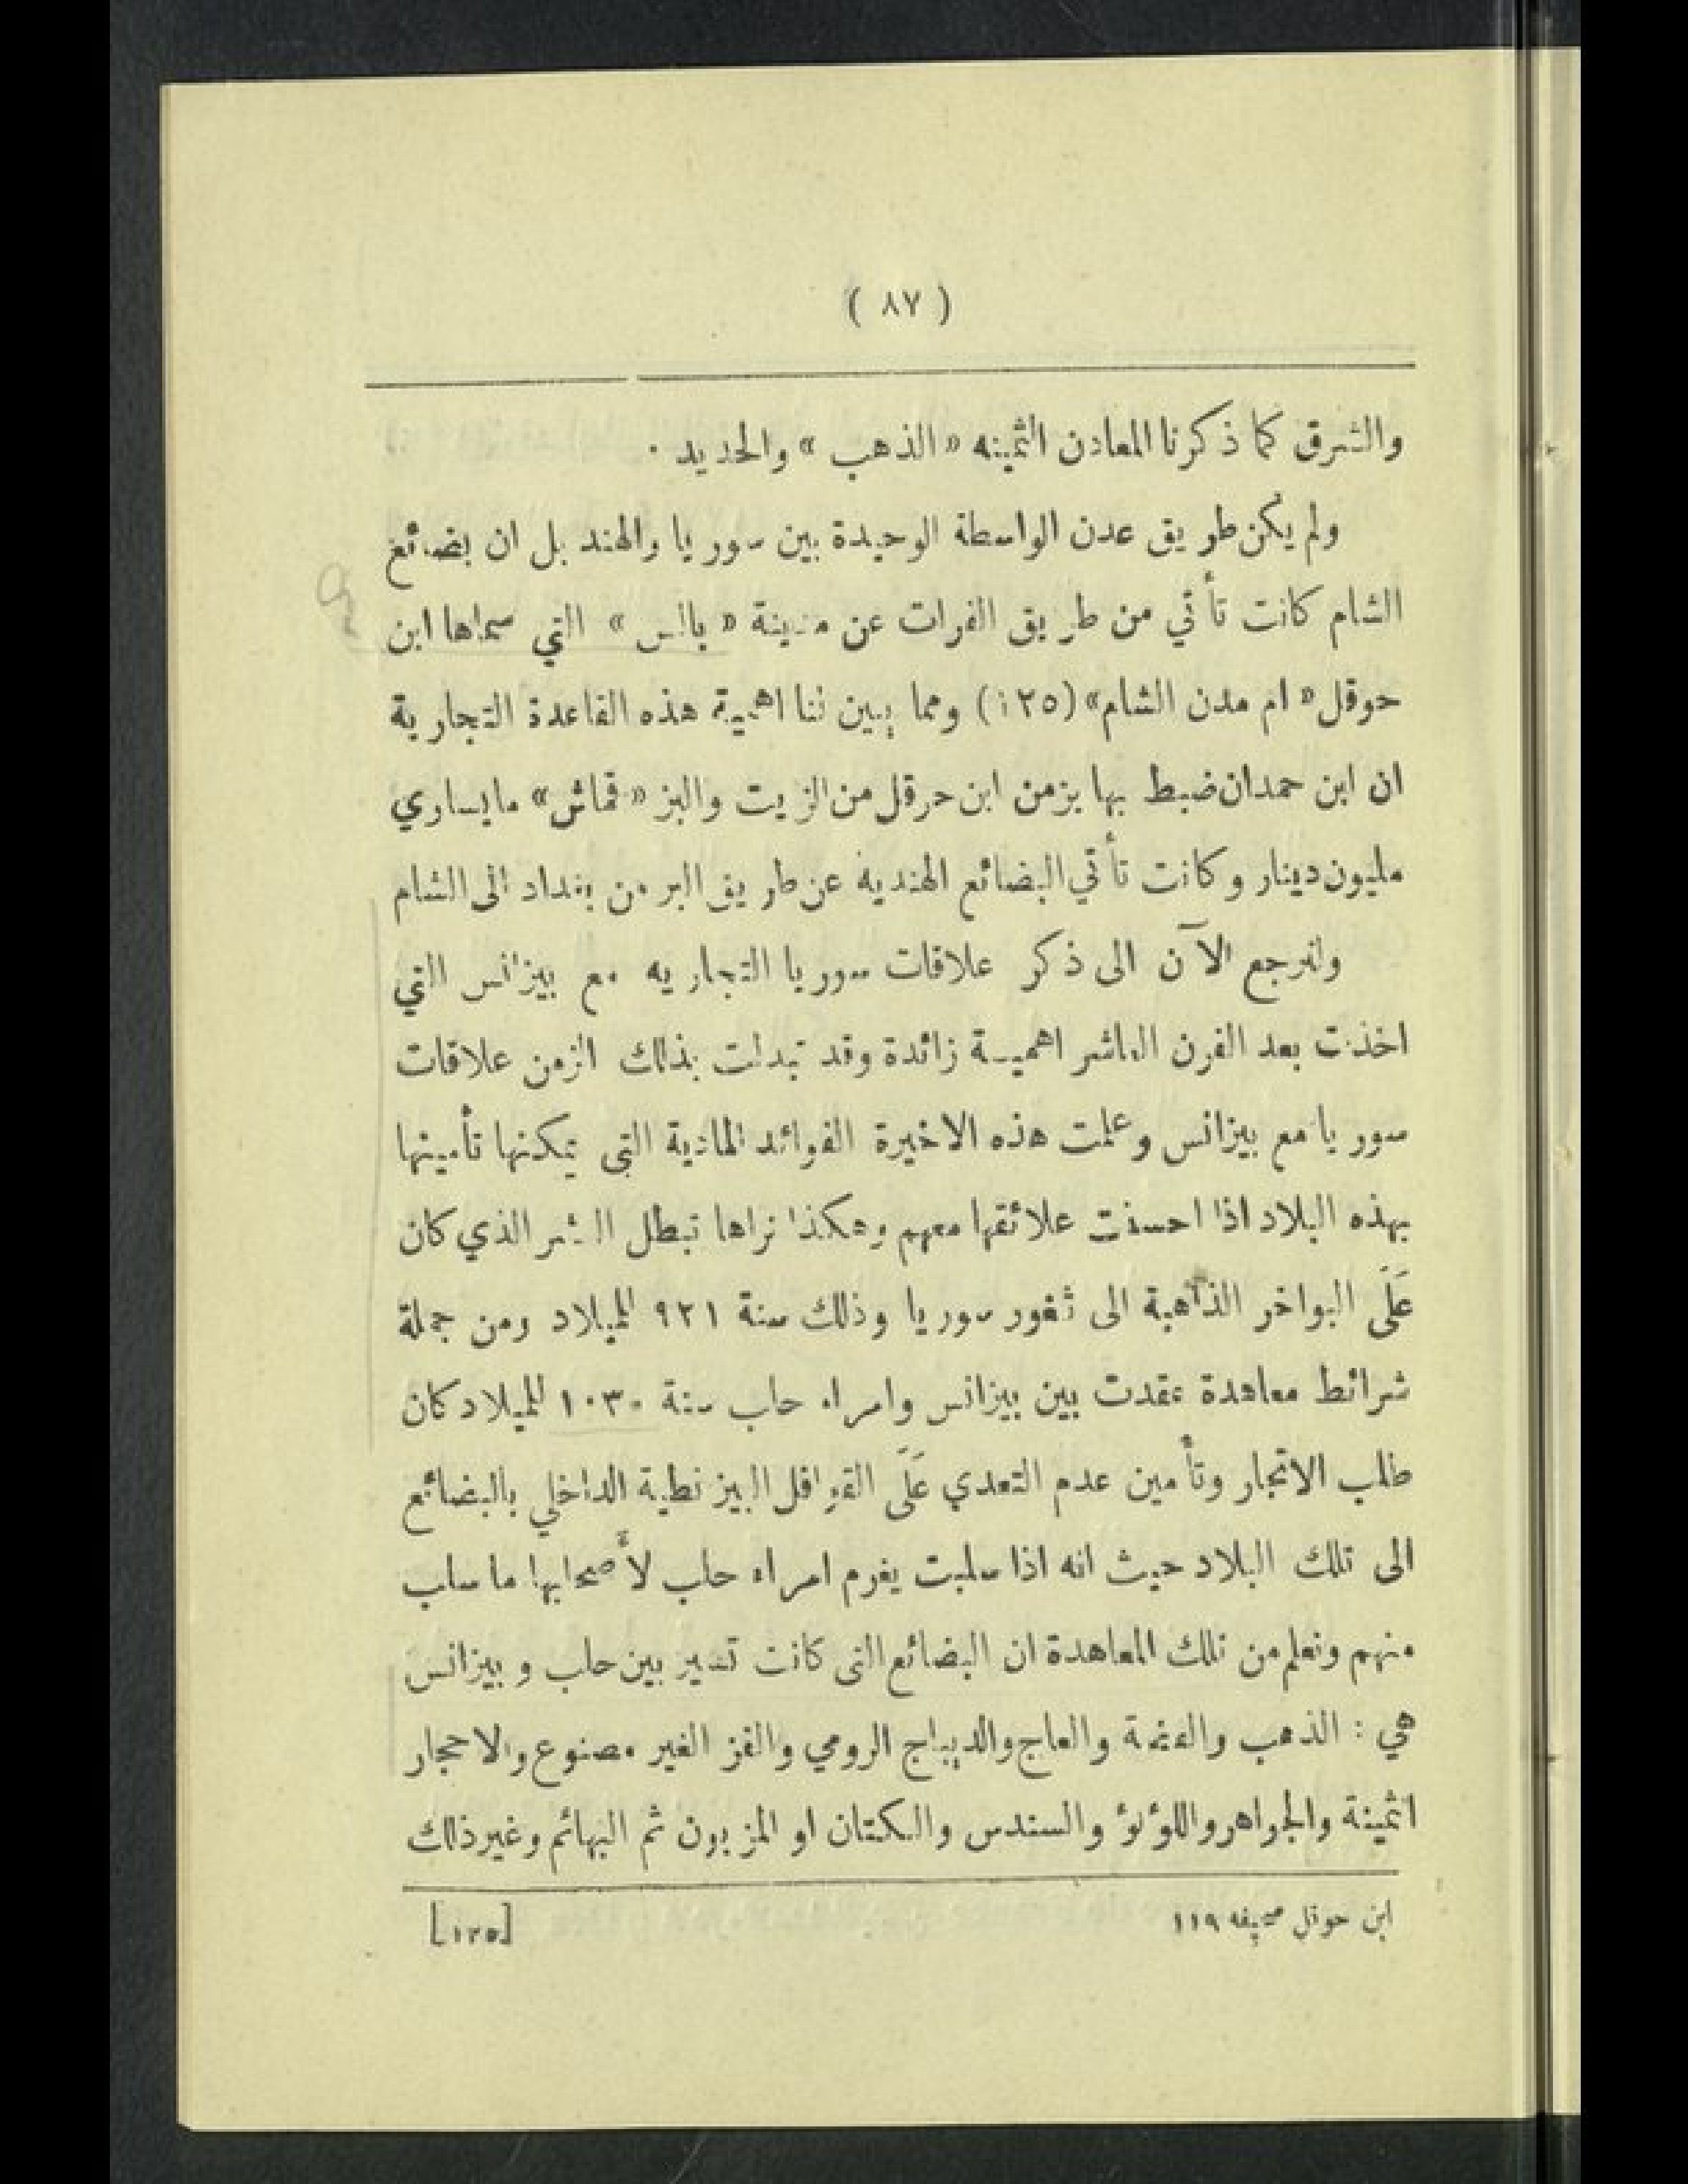 ( ٨٧ )
والشرق كما ذكرنا المعادن الثمينه « الذهب » والحديد ·
ولم يكن طريق عدن الواسطة الوحيدة بين سوريا والهند بل ان بضائع
الشام كانت تأتي من طريق الفرات عن مدينة « بالس » التي سماها ابن
حوقل « ام مدن الشام» (١٢٥) ومما يبين لنا اهمية هذه القاعدة التجارية
ان ابن حمدان ضبط بها بزمن ابن حوقل من الزيت والبز « قماش » مايساوي
مليون دينار وكانت تأتي البضائع الهنديه عن طريق البر من بغداد الى الشام
ولنرجع الآن الى ذكر علاقات سوريا التجاريه مع بيزانس التي
اخذت بعد القرن العاشر اهمية زائدة وقد تبدلت بذلك الزمن علاقات
سوريا مع بيزانس وعلمت هذه الاخيرة الفوائد المادية التي يمكنها تأمينها
بهذه البلاد اذا احسنت علائقها معهم وهكذا نراها تبطل الذي كان
عَلَى البواخر الذاهبة الى ثغور سوريا وذلك سنة ٩٢١ للميلاد ومن جملة
شرائط معاهدة عقدت بين بيزانس وامراء حلب سنة ١٠٣٠ للميلاد كان
طلب الاتجار وتأمين عدم التعدي عَلَى القوافل البيزنطية الداخلي بالبضائع
الى تلك البلاد حيث انه اذا سلبت يغرم امراء حلب لأصحابها ما سلب
منهم ونعلم من تلك المعاهدة ان البضائع التي كانت تسير بين حلب وبيزانس
هي : الذهب والفضة والعاج والديباج الرومي والقز الغير مصنوع والاحجار
الثمينة والجواهر واللؤلؤ والسندس والكتان او المزبون ثم البهائم وغير ذلك
ابن حوقل صحيفه ١١٩
[١٢٥]